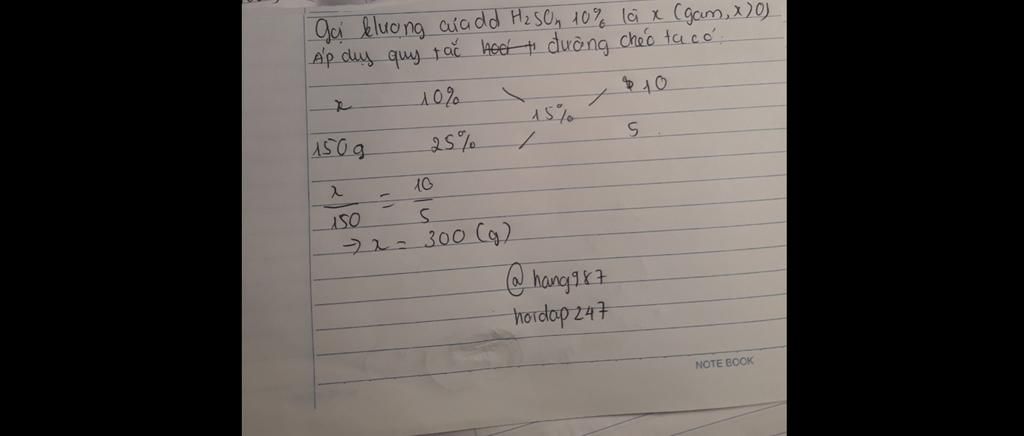 Gọi klượng của dd H₂SO₄ 10% là x (gam, x>0)
Áp dụg quy tắc đường chéo ta có
x 10% 10
15%
150g 25% 5
x/150 = 10/5
→ x = 300 (g)
@hang987
hoidap247
NOTE BOOK